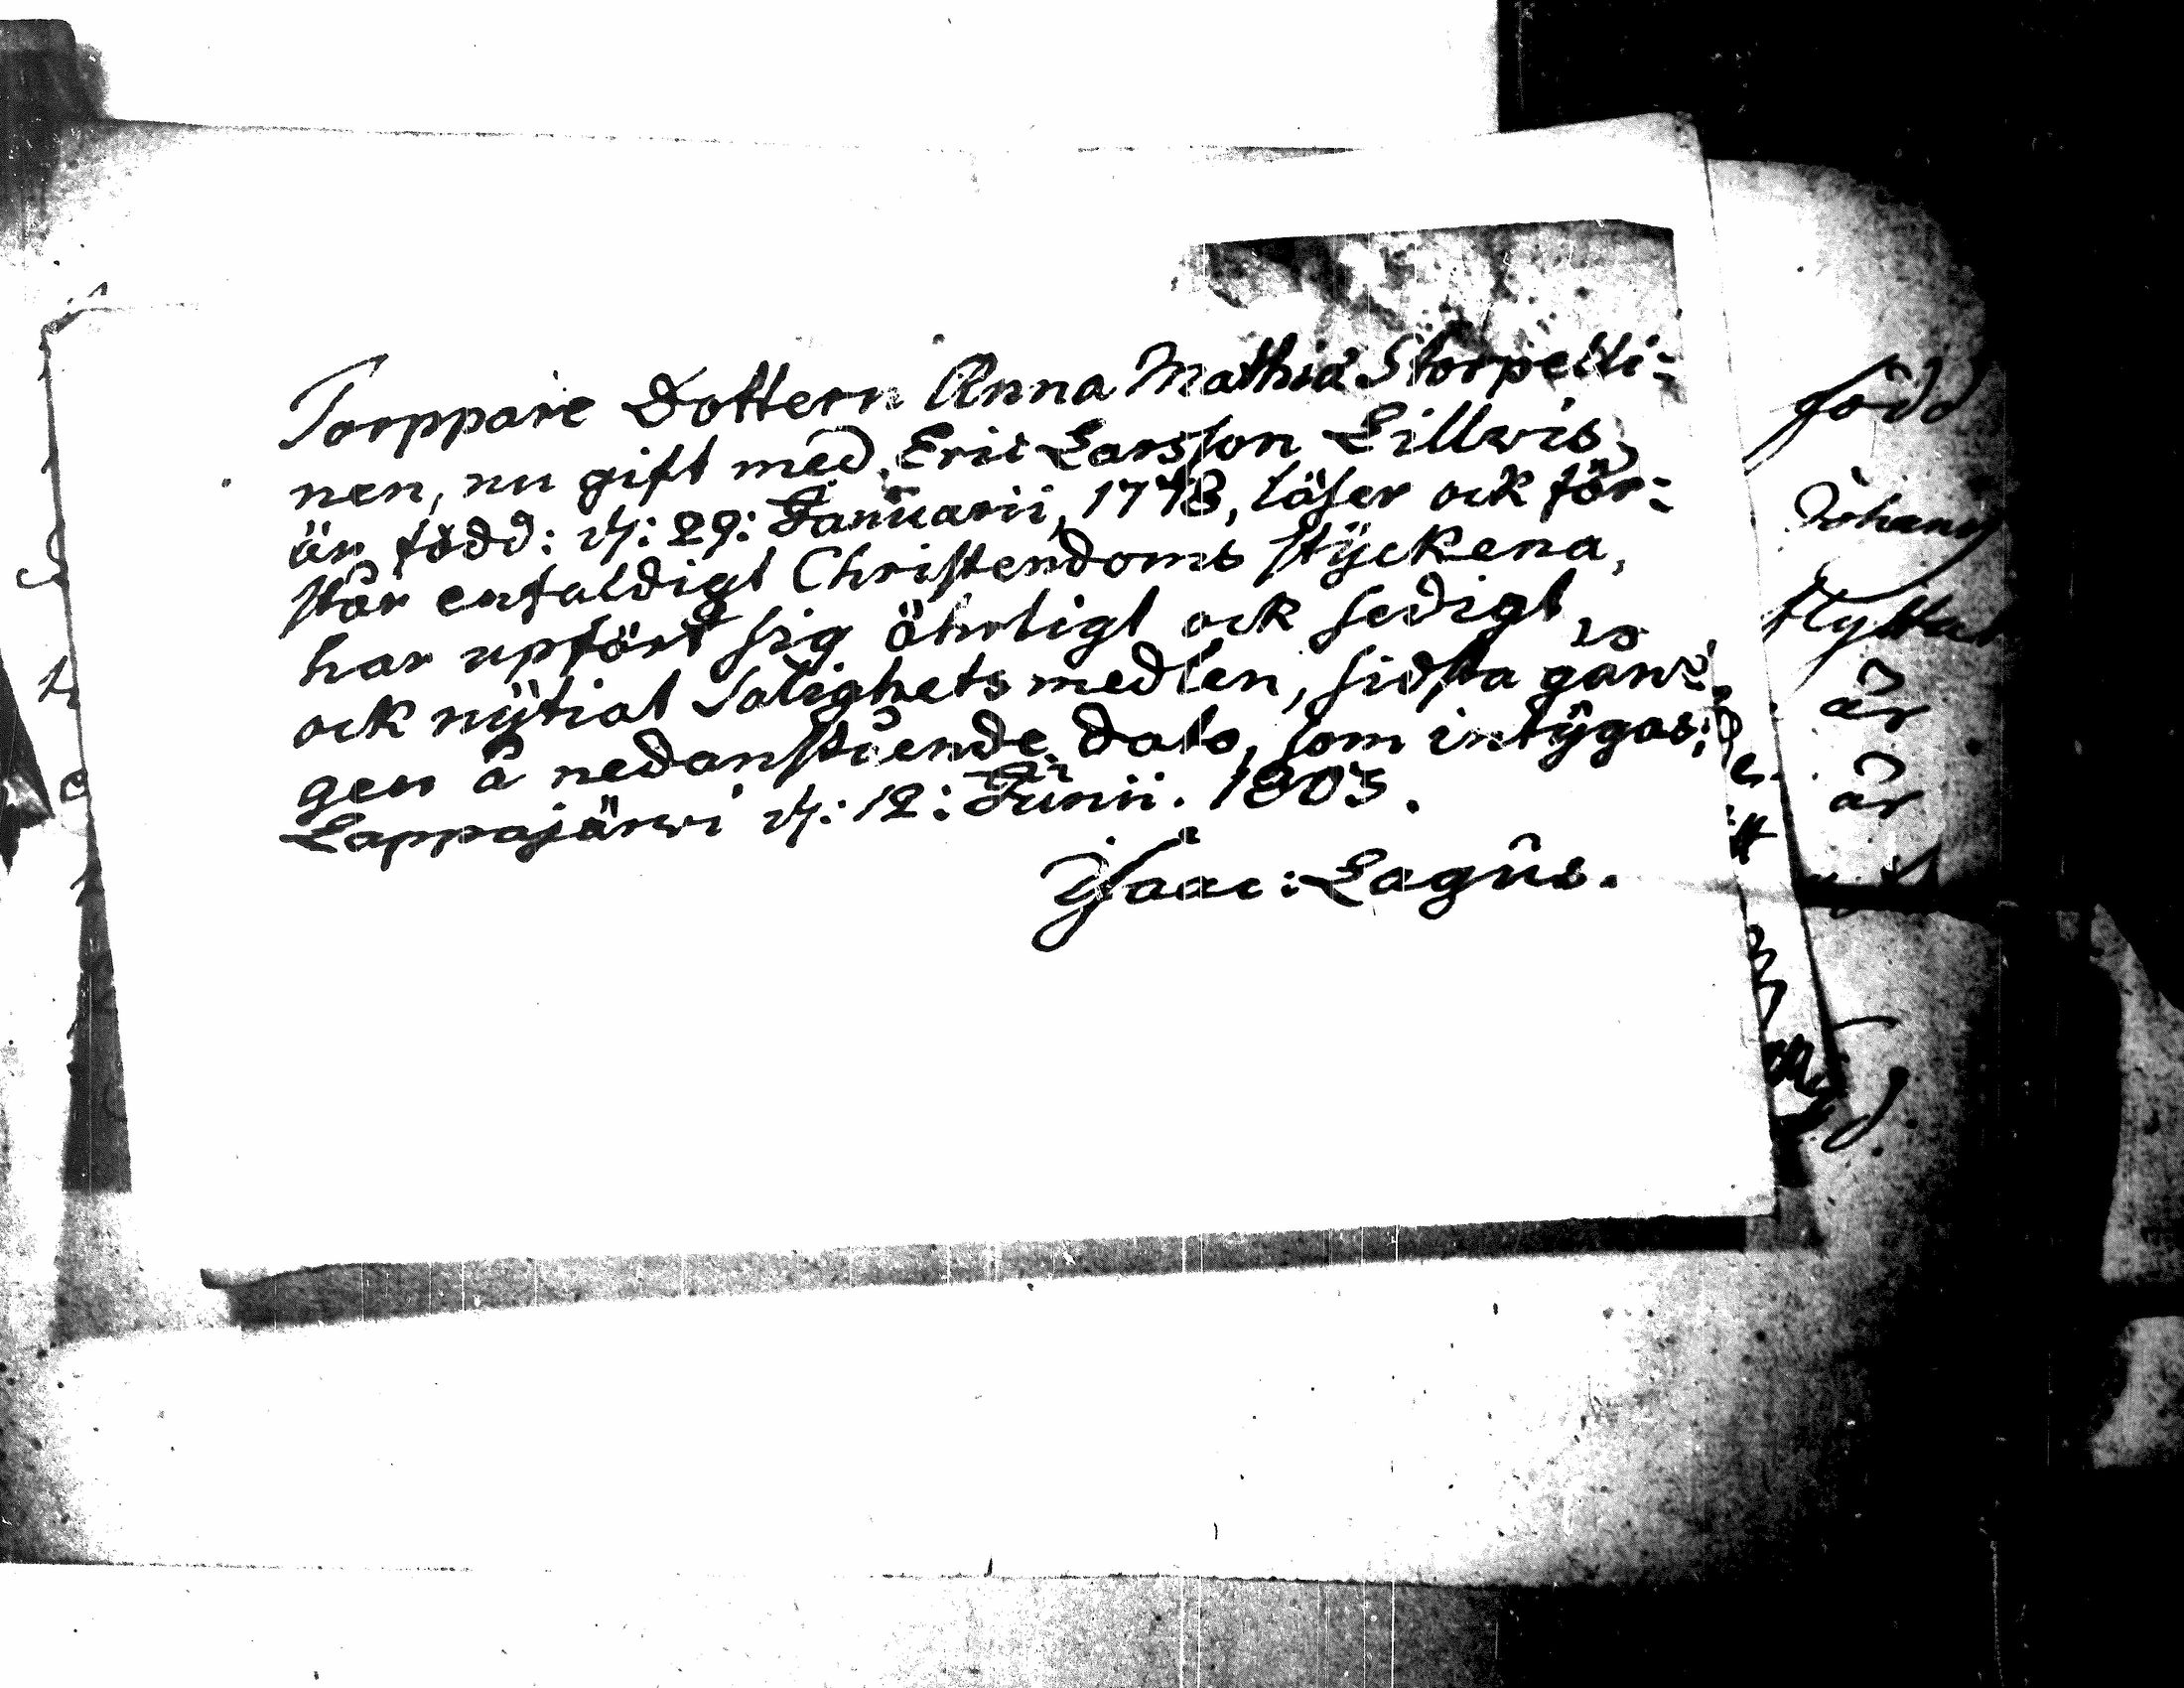 Torppare Dottern Anna Mathid Storpelti-
nen, nu gift med Eric Larsson Lillwis,
är född: d: 29: Januarii, 1778, läser ock för-
står enfaldigt Christendoms styckena,
har upfört sig ährligt ock sedigt,
ock nÿtiat Salighets medlen, sidsta gån-
gen å nedanstående dato, som intÿgas;
Lappajärwi d: 12: Junii. 1805.
Ysaac: Lagus.
född
Johans
flyttat
är
är